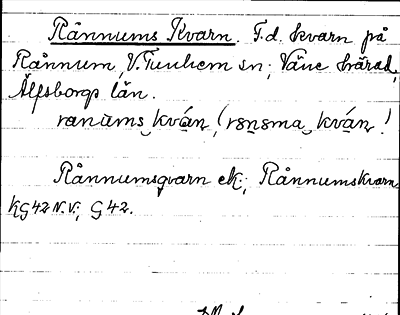 Rånnums Kvarn. F.d. kvarn på
Rånnum, V. Tunhem sn; Väne härad,
Älfsborgs län.
ranums kván, (rsnsma kván!
Rånnumsqvarn ek; Rånnumskvarn
KG42 N.V.; G42.